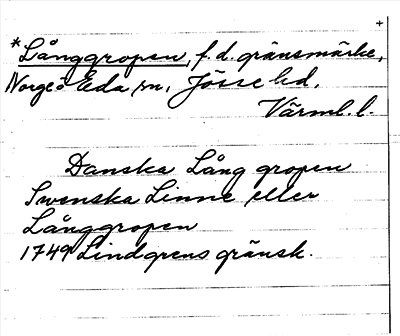 +
*Långgropen, f.d. gränsmärke,
Norge o Eda sn, Jösse hd,
Värml. l.
Danska Lång gropen
Swenska Linne eller
Långgropen
1749 Lindgrens gränsk.